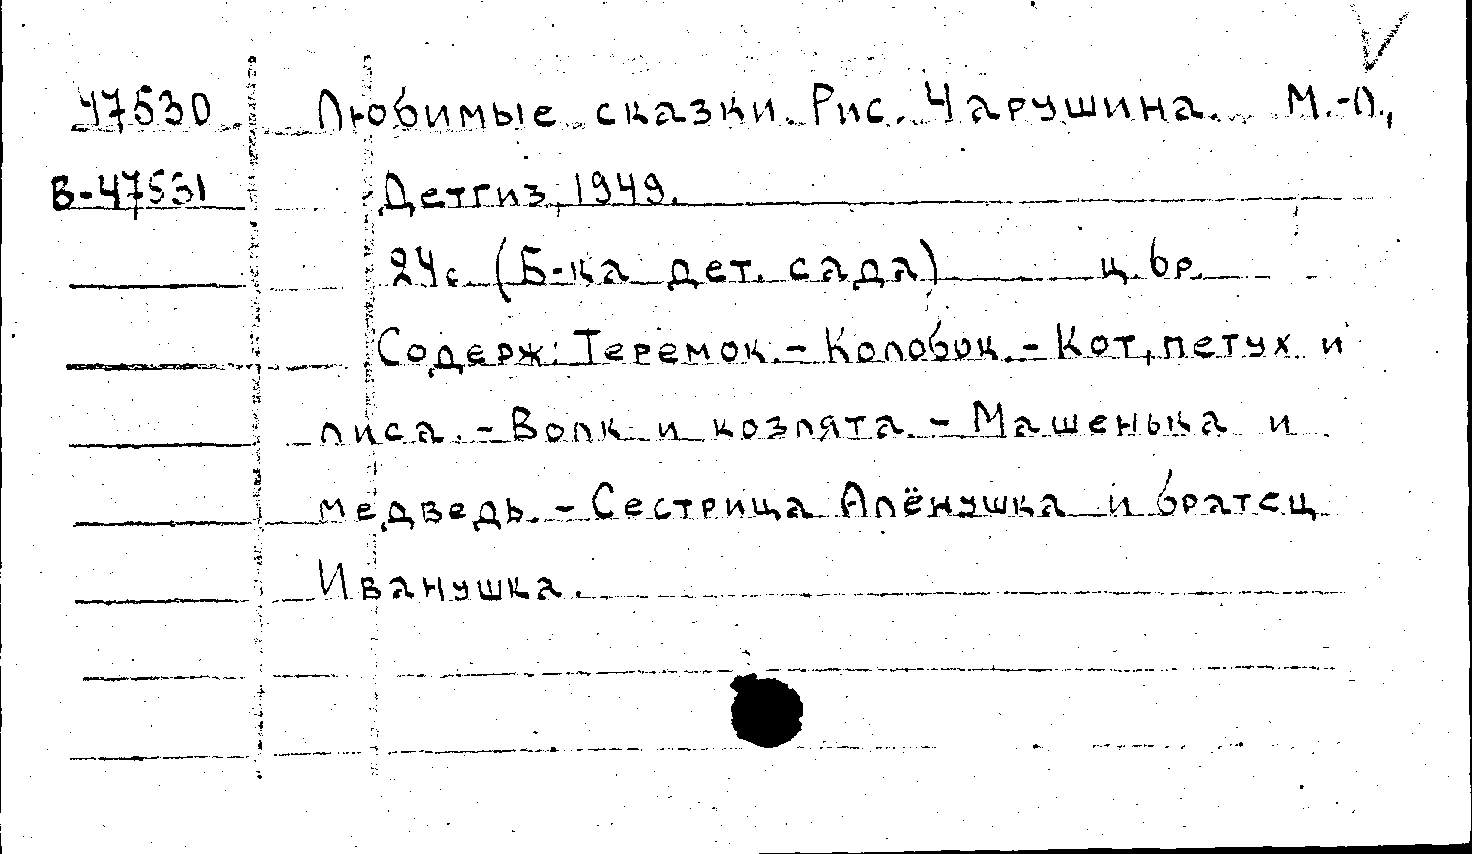 47530 Любимые сказки. Рис. Чарушина. М.-Л.,
В-47531 Детгиз, 1949.
24с. (Б-ка дет. сада) ц. 6р.
Содерж: Теремок. - Колобок. - Кот, петух и
лиса. - Волк и козлята. - Машенька и
медведь. - Сестрица Алёнушка и братец
Иванушка.